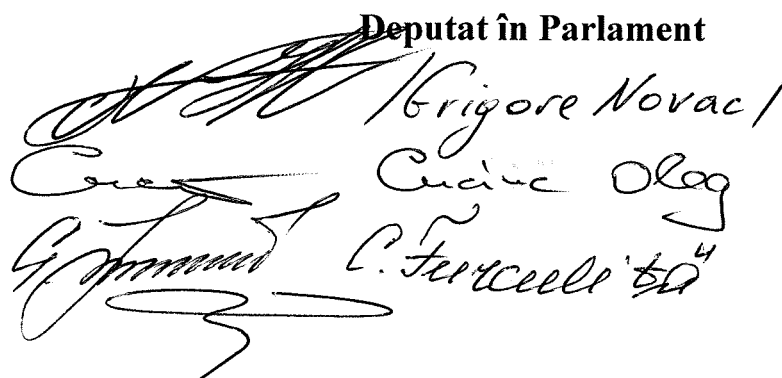 Deputat în Parlament
/Grigore Novac/
Cuciuc Oleg
C. Furculiță